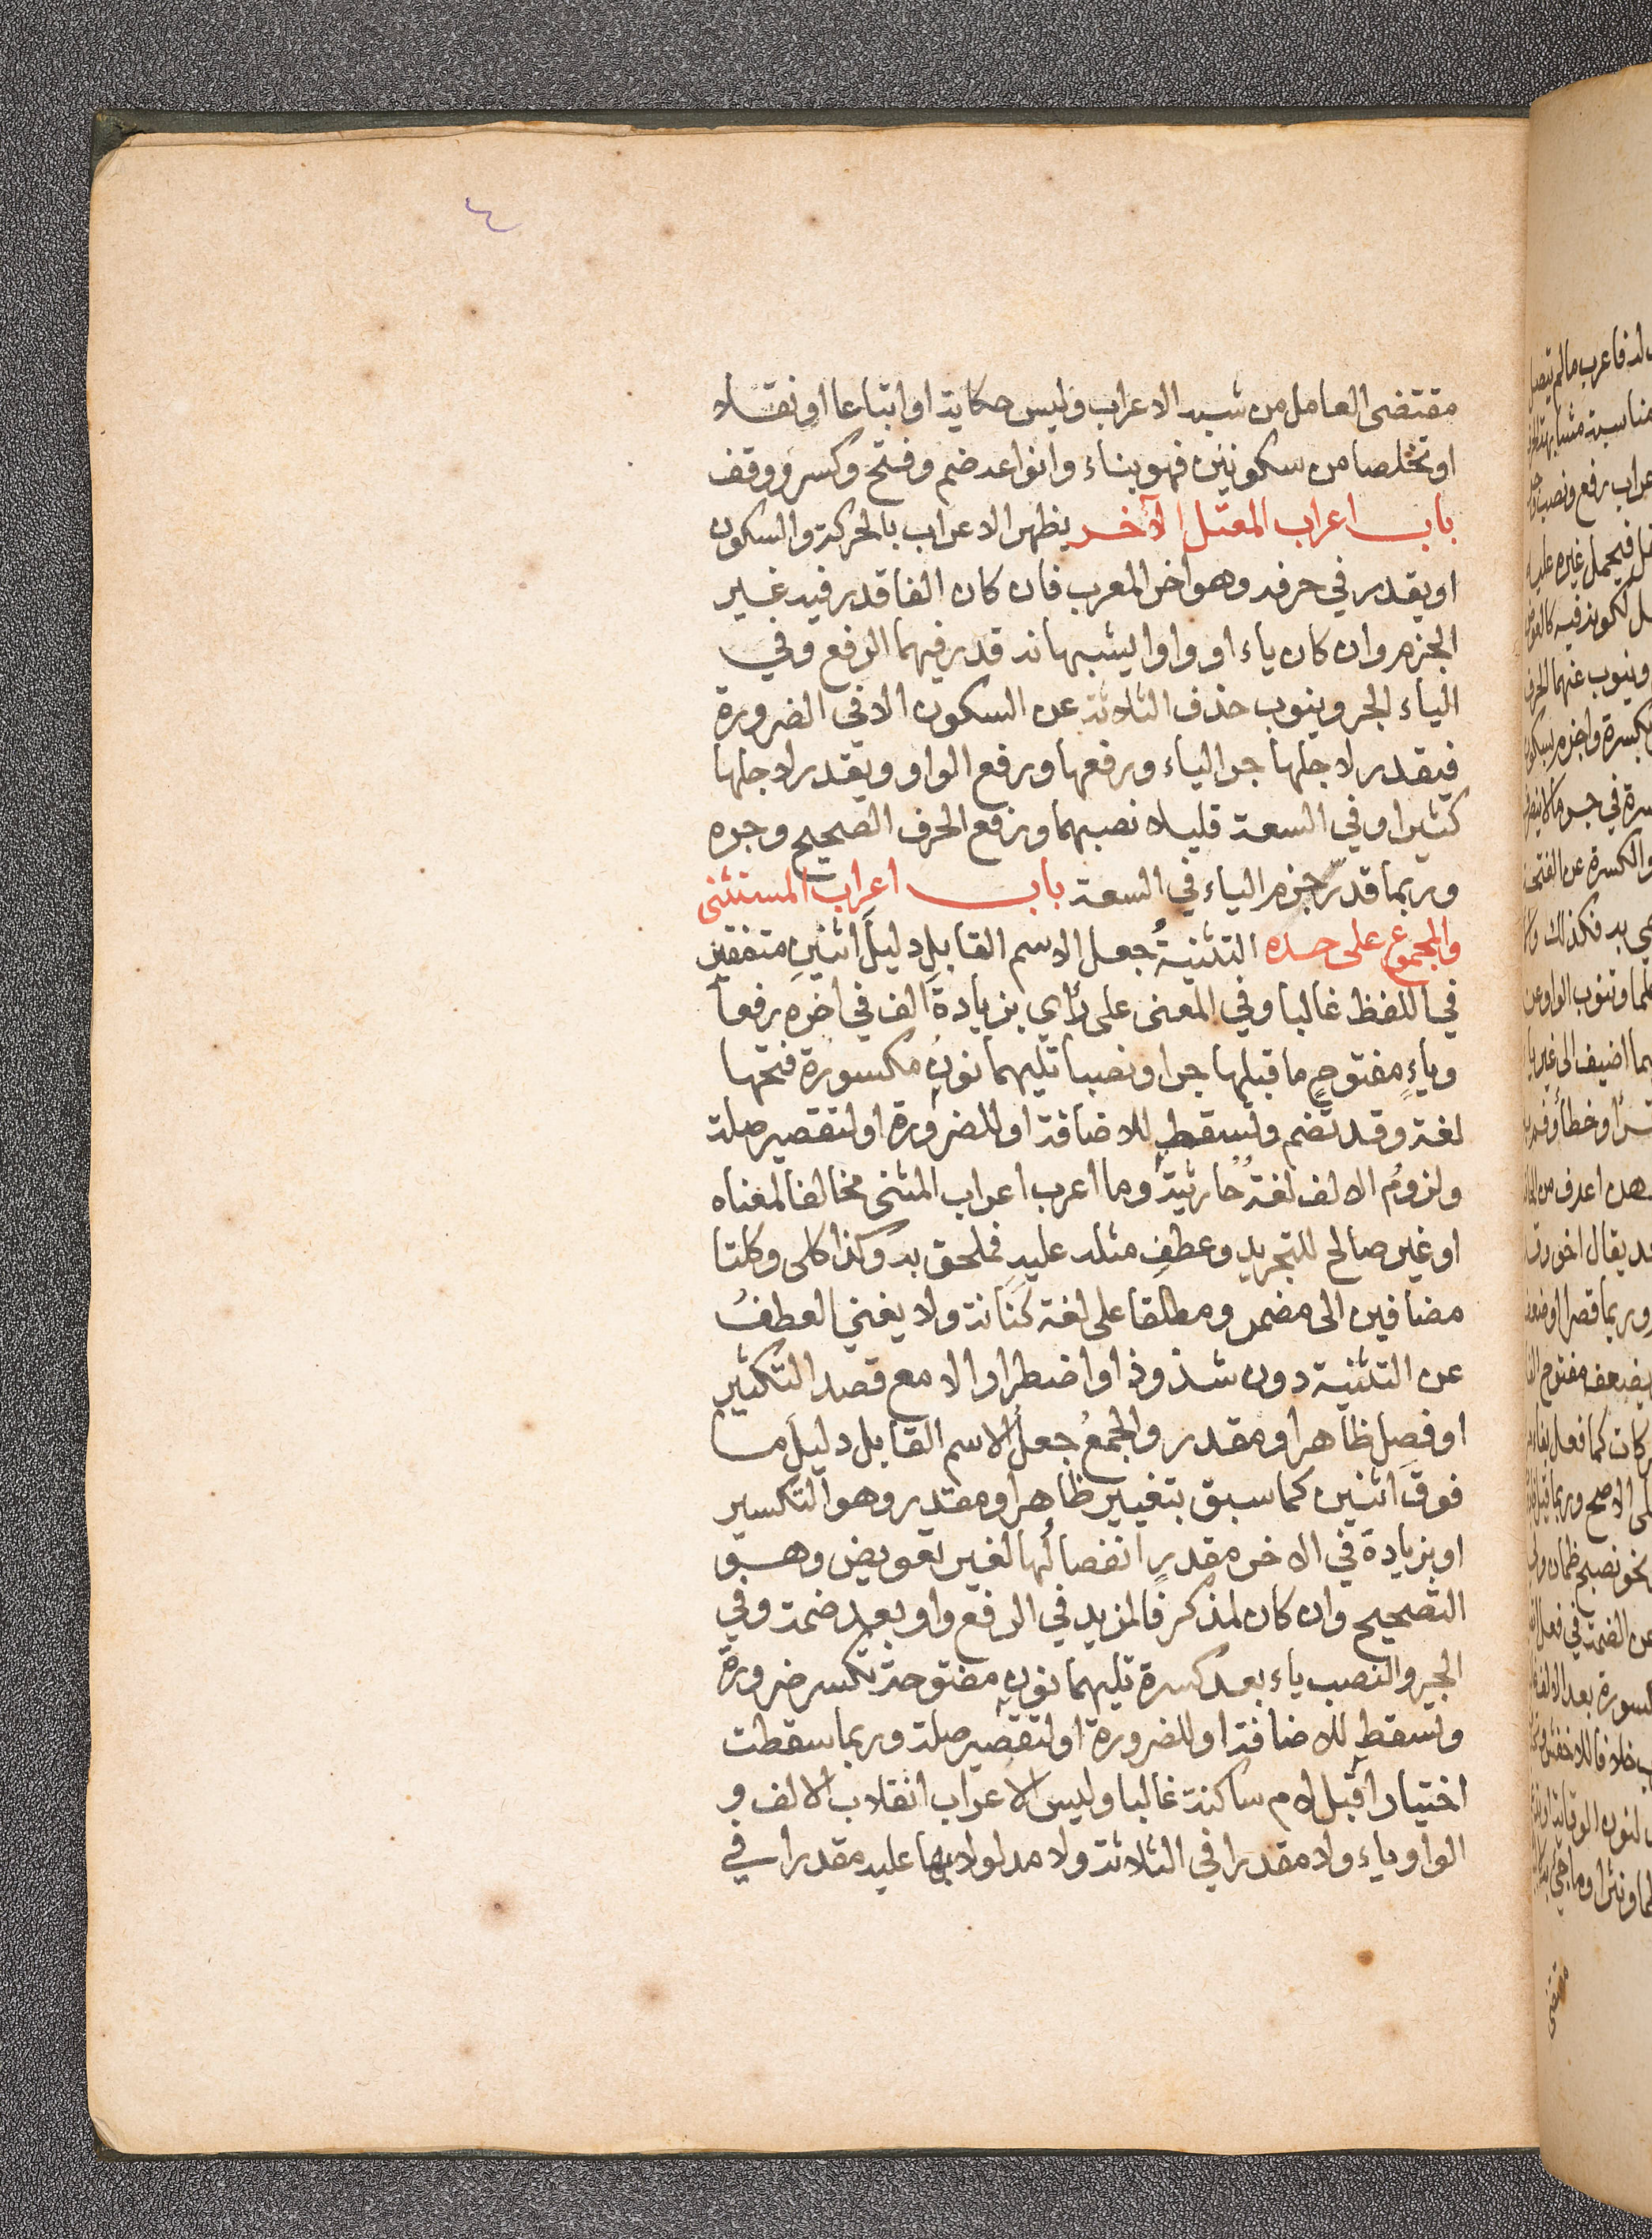 ٤
مقتضى العامل من شبه الاعراب وليس حكاية او اتباعا او نقلا
او تخلصا من سكونين فهو بناء وانواعه ضم وفتح وكسر ووقف
باب اعراب المعتل الآخر يظهر الاعراب بالحركة والسكون
او يقدر في حرفه وهو اخر المعرب فان كان الفا قدر فيه غير
الجزم وان كان ياء او واوا يشبهانه قدر فيهما الرفع وفي
الياء الجر وينوب حذف الثلاثة عن السكون الا في الضرورة
فيقدر لاجلها جر الياء ورفعها ورفع الواو ويقدر لاجلها
كثيرا وفي السعة قليلا نصبهما ورفع الحرف الصحيح وجره
وربما قدر جزم الياء في السعة باب اعراب المستثنى
والمجموع على حده التثنيةُ جعل الاسم القابلِ دليلَ اثنينِ متفقين
في اللفظ غالبا وفي المعنى على رأي بزيادةِ الف في اخره رفعا
وياءٍ مفتوحٍ ما قبلها جرا ونصبا تليهما نونٌ مكسورة فتحها
لغة وقد تضم وتسقط للاضافة او للضرورة او لتقصير صلة
ولزومُ الالف لغةٌ حارثيةٌ وما اعرب اعراب المثنى مخالفا لمعناه
او غير صالح للتجريد وعطفِ مثله عليه فملحق به وكذا كلى وكلتا
مضافين الى مضمر ومطلقا على لغة كَنَانة ولا يغني العطفُ
عن التثنية دون شذوذ او اضطرار الا مع قصد التكثير
او فصلٍ ظاهر او مقدر والجمعُ جعلُ الاسم القابل دليلَ ما
فوقَ اثنين كما سبق بتغيير ظاهر او مقدر وهو التكسير
او بزيادة في الاخر مقدرٍ انفصالُها لغير تعويض وهو
التصحيح وان كان لمذكر فالمزيد في الرفع واو بعد ضمة وفي
الجر والنصب ياء بعد كسرة تليهما نون مفتوحة تكسر ضرورة
وتسقط للاضافة او للضرورة او لتقصير صلة وربما سقطت
اختيارا قبل لام ساكنة غالبا وليس الاعراب انقلاب الالف و
الواو ياء ولا مقدرا في الثلاثة ولا مدلولا بها عليه مقدرا في
مقتضى